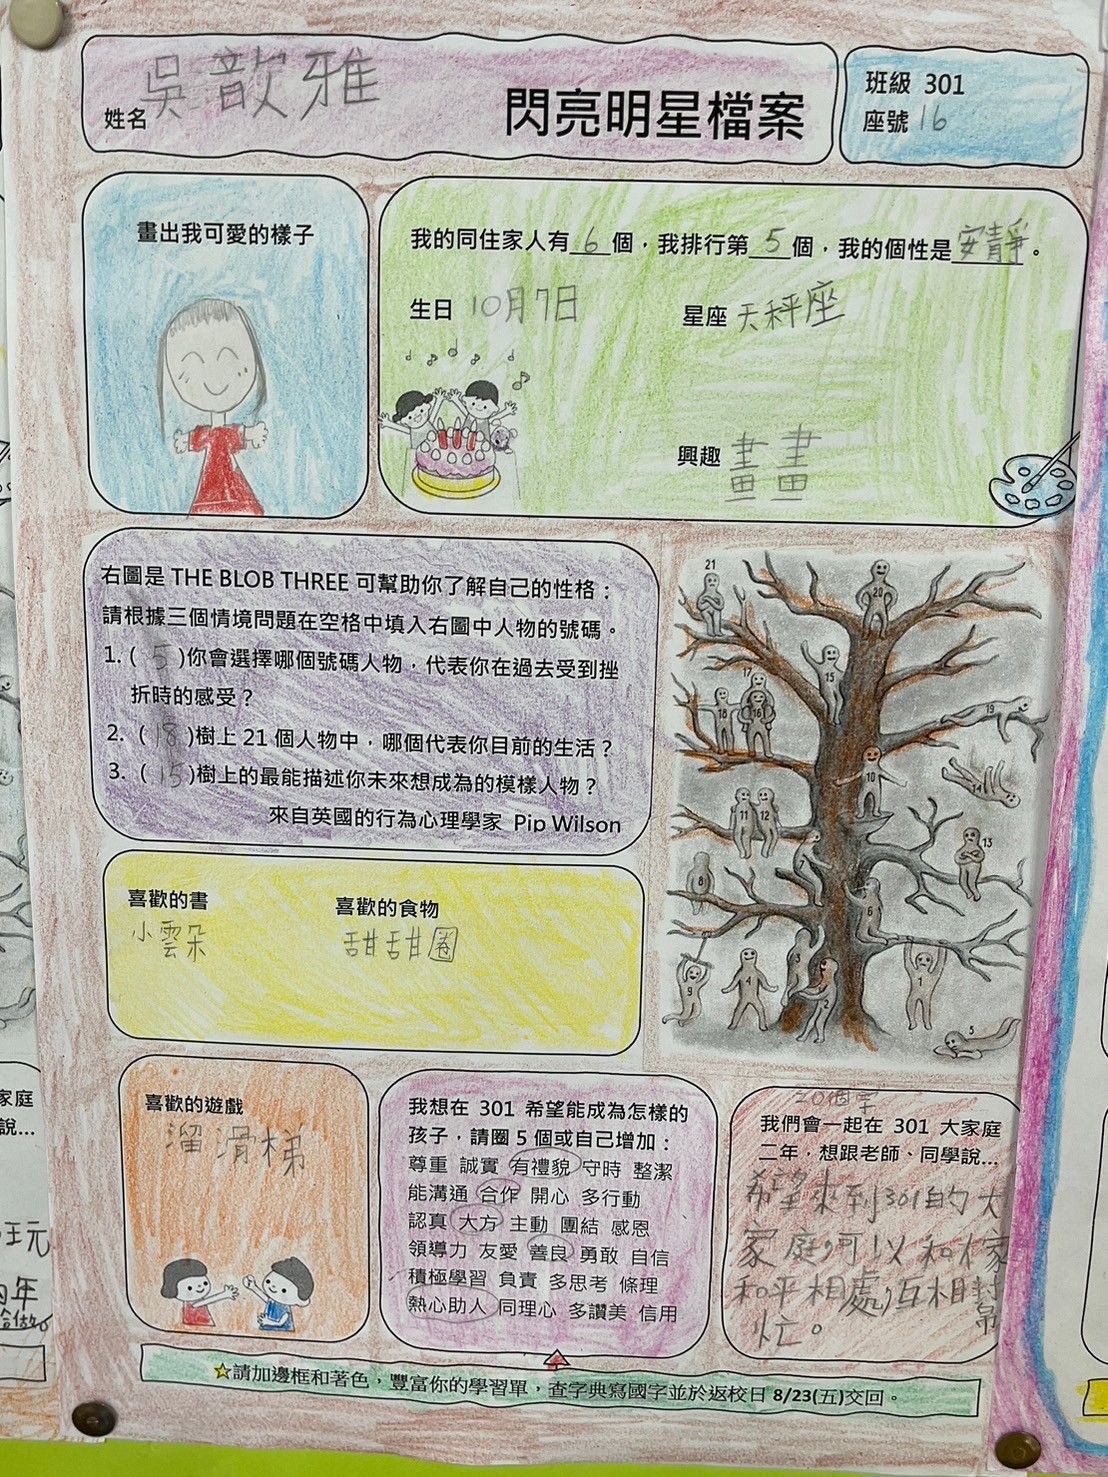 姓名 吳歆雅
閃亮明星檔案
班級 301
座號 16
畫出我可愛的樣子
我的同住家人有 6 個，我排行第 5 個，我的個性是 安靜 。
生日 10月7日
星座 天秤座
興趣 畫畫
右圖是 THE BLOB THREE 可幫助你了解自己的性格：
請根據三個情境問題在空格中填入右圖中人物的號碼。
1. ( 5 )你會選擇哪個號碼人物，代表你在過去受到挫
折時的感受？
2. ( 18 )樹上 21 個人物中，哪個代表你目前的生活？
3. ( 15 )樹上的最能描述你未來想成為的模樣人物？
來自英國的行為心理學家 Pip Wilson
21
20
15
17
18
16
19
10
14
11
12
13
8
6
9
4
3
2
1
5
喜歡的書
小雲朵
喜歡的食物
甜甜圈
喜歡的遊戲
溜滑梯
我想在 301 希望能成為怎樣的
孩子，請圈 5 個或自己增加：
尊重 誠實 有禮貌 守時 整潔
能溝通 合作 開心 多行動
認真 大方 主動 團結 感恩
領導力 友愛 善良 勇敢 自信
積極學習 負責 多思考 條理
熱心助人 同理心 多讚美 信用
20個字
我們會一起在 301 大家庭
二年，想跟老師、同學說...
希望來到301的大
家庭，可以和大家
和平相處，互相幫
忙。
☆請加邊框和著色，豐富你的學習單，查字典寫國字並於返校日 8/23(五)交回。
家庭
說...